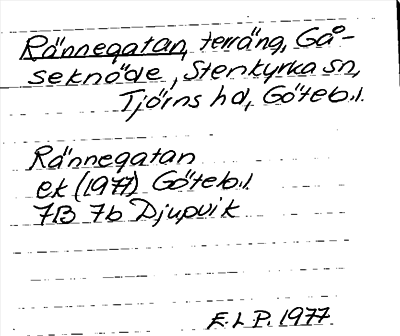 Rännegatan, terräng, Gå-
seknöde, Stenkyrka sn,
Tjörns hd, Göteb.l.
Rännegatan
ek (1977) Göteb.l.
7B 7b Djupvik
F.L.P. 1977